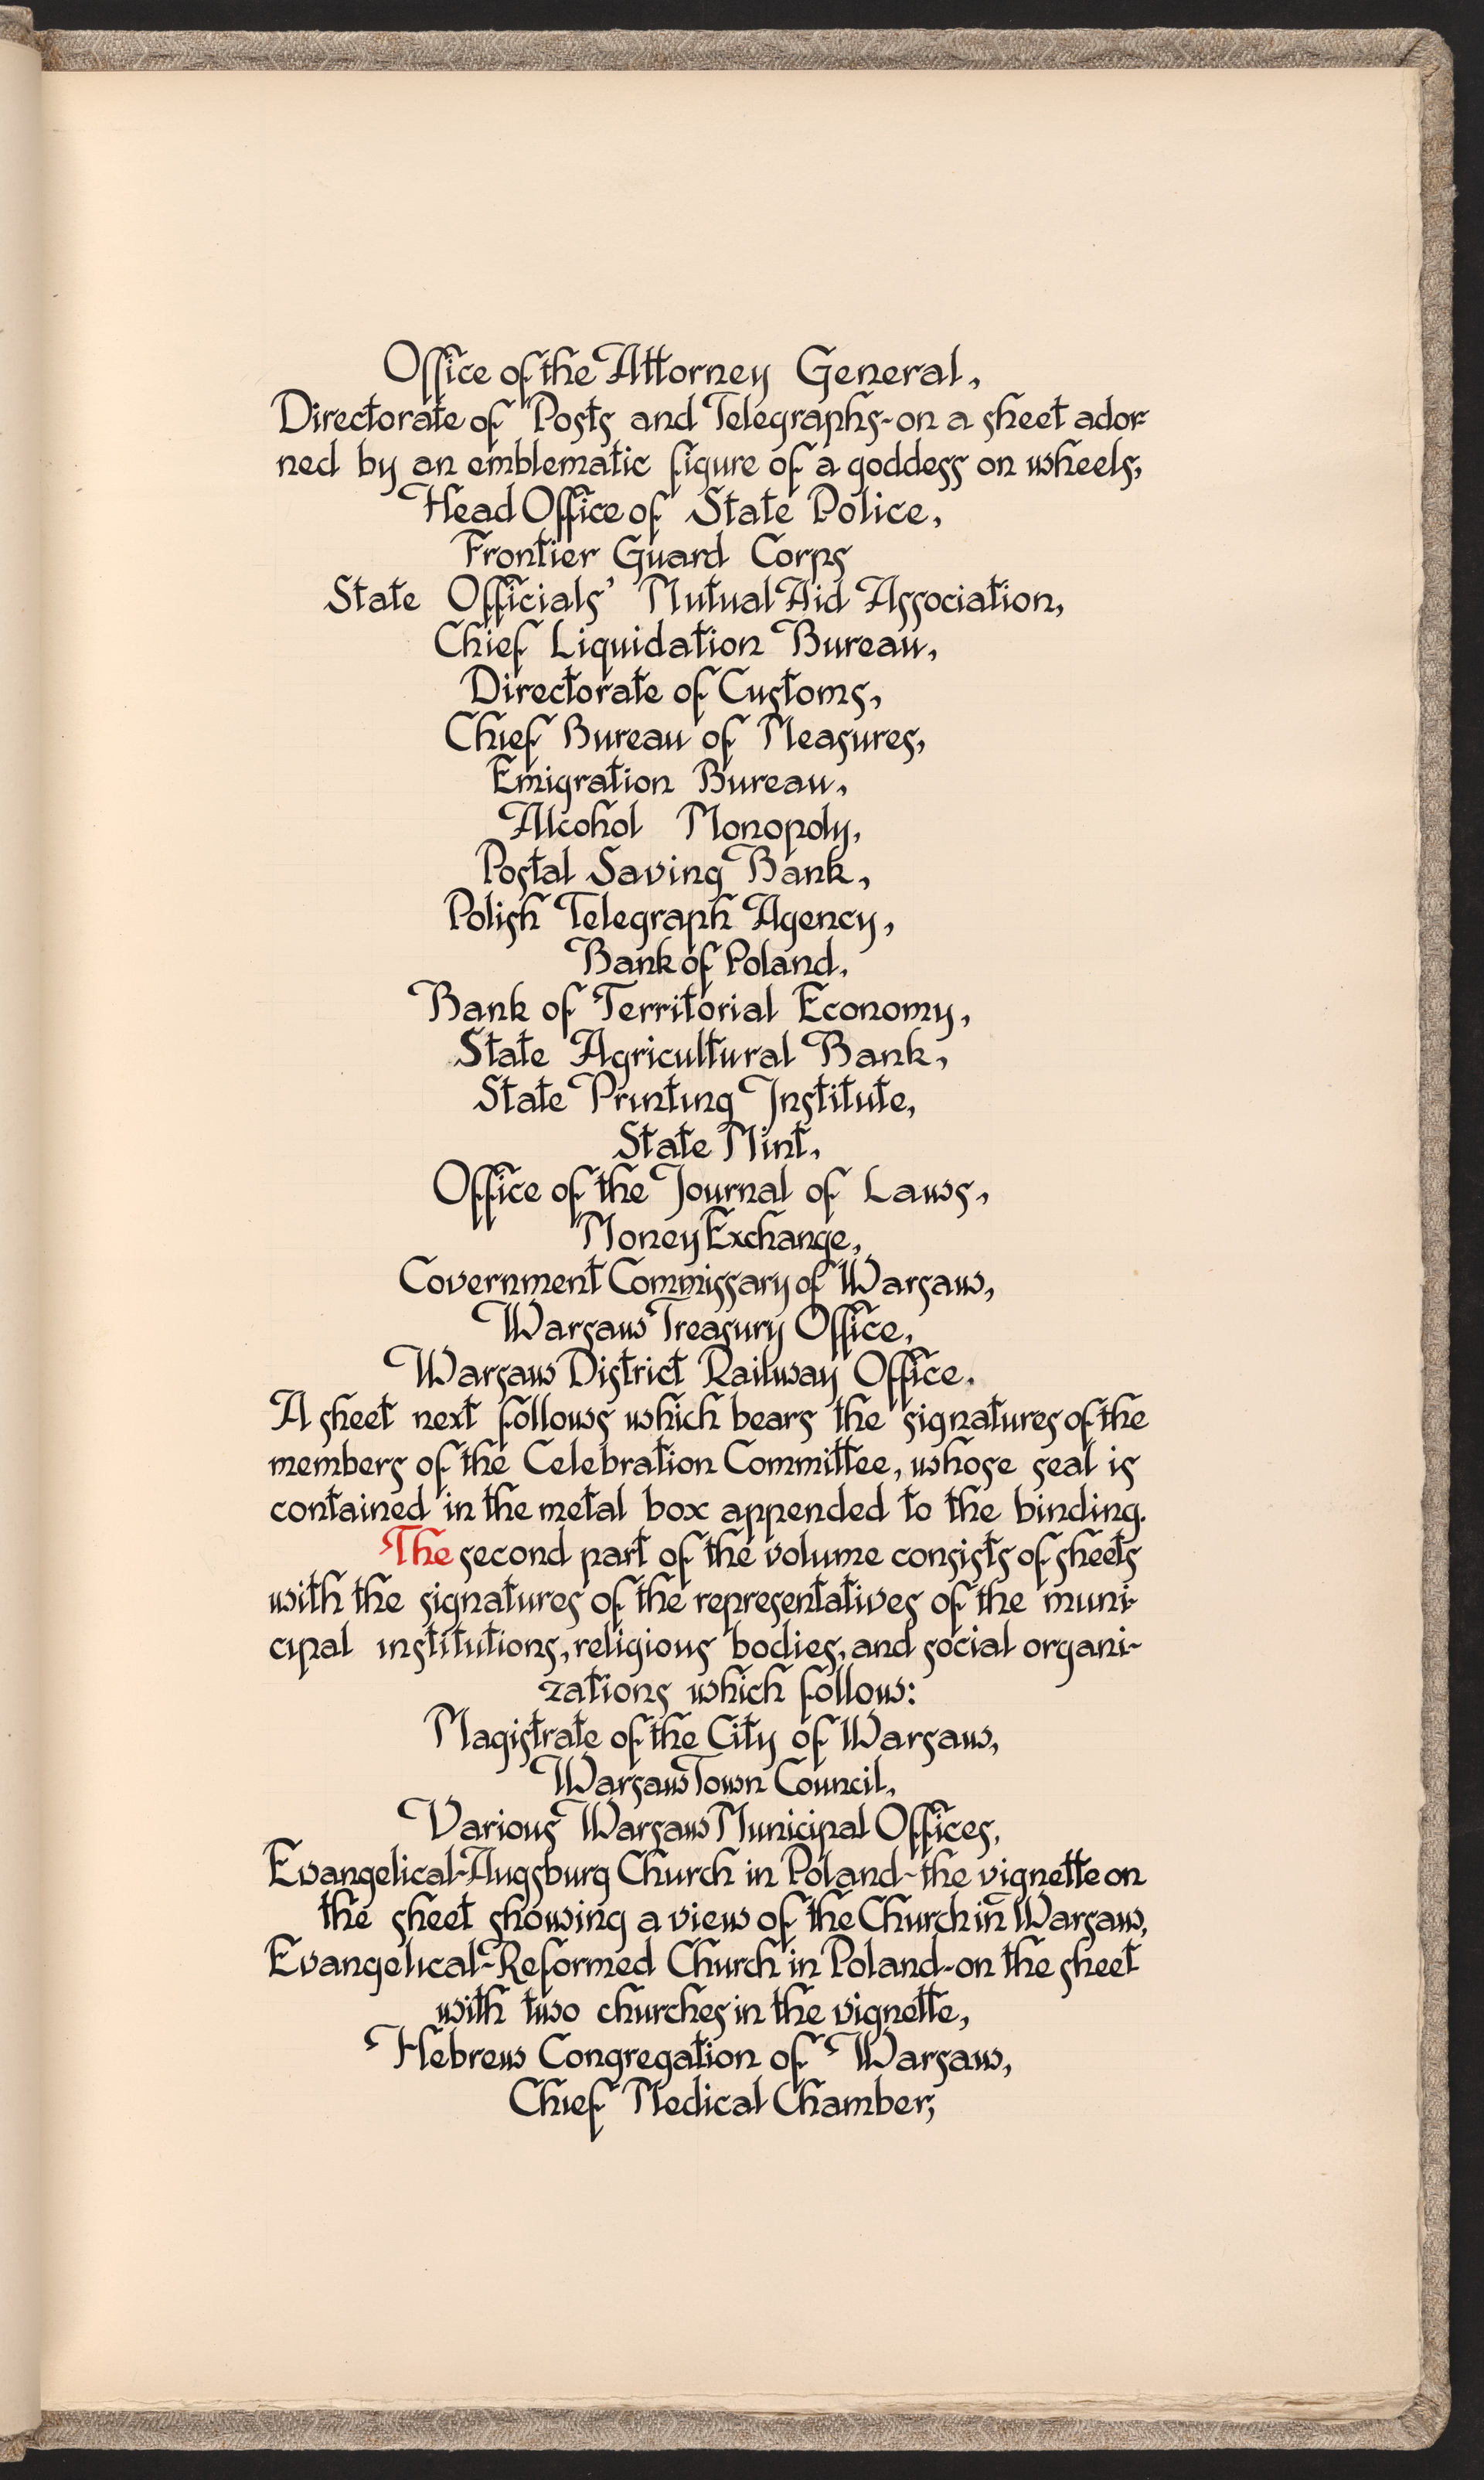 Office of the Attorney General,
Directorate of Posts and Telegraphs-on a sheet ador-
ned by an emblematic figure of a goddess on wheels,
Head Office of State Police,
Frontier Guard Corps
State Officials' Mutual Aid Association,
Chief Liquidation Bureau,
Directorate of Customs,
Chief Bureau of Measures,
Emigration Bureau,
Alcohol Monopoly,
Postal Saving Bank,
Polish Telegraph Agency,
Bank of Poland,
Bank of Territorial Economy,
State Agricultural Bank,
State Printing Institute,
State Mint,
Office of the Journal of Laws,
Money Exchange,
Covernment Commissary of Warsaw,
Warsaw Treasury Office,
Warsaw District Railway Office.
A sheet next follows which bears the signatures of the
members of the Celebration Committee, whose seal is
contained in the metal box appended to the binding.
The second part of the volume consists of sheets
with the signatures of the representatives of the muni-
cipal institutions, religious bodies, and social organi-
zations which follow:
Magistrate of the City of Warsaw,
Warsaw Town Council,
Various Warsaw Municipal Offices,
Evangelical-Augsburg Church in Poland-the vignette on
the sheet showing a view of the Church in Warsaw,
Evangelical-Reformed Church in Poland-on the sheet
with two churches in the vignette,
Hebrew Congregation of Warsaw,
Chief Medical Chamber,